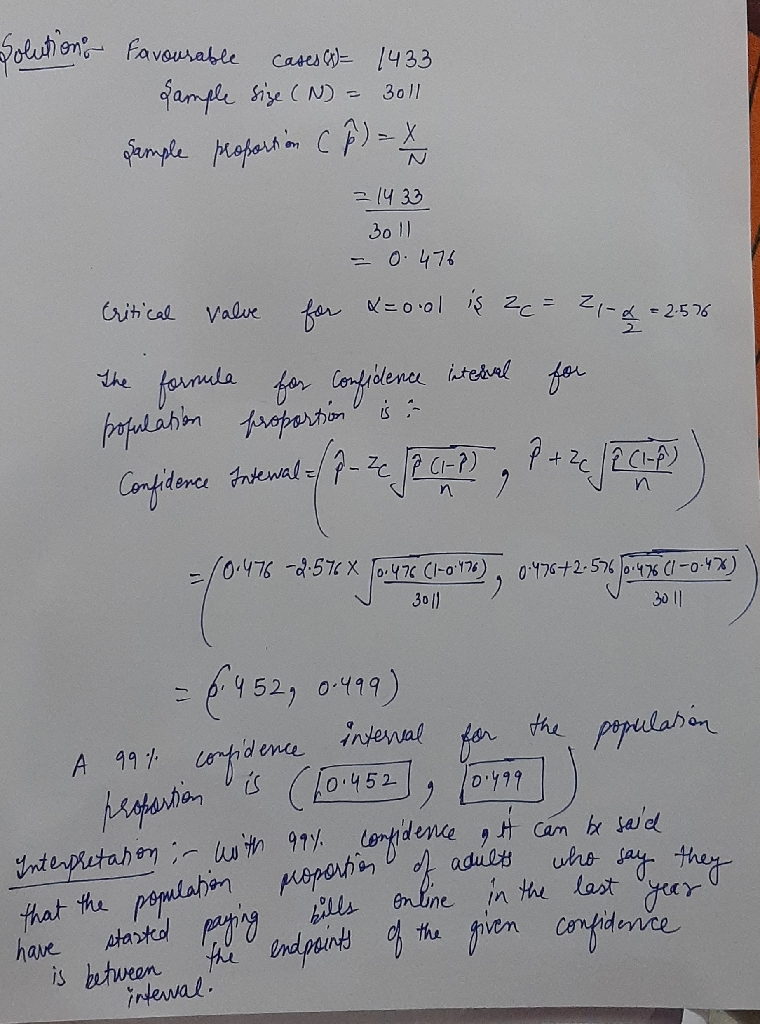 Solution:- Favourable cases(x) = 1433
Sample size (N) = 3011
Sample proportion (p̂) = X/N
= 1433/3011
= 0.476
Critical value for α=0.01 is Zc = Z1-α/2 = 2.576
The formula for Confidence interval for
population proportion is :-
Confidence Interval = (p̂ - Zc √(p̂(1-p̂)/n) , p̂ + Zc √(p̂(1-p̂)/n))
= (0.476 - 2.576 x √(0.476(1-0.476)/3011) , 0.476+2.576 √(0.476(1-0.476)/3011))
= (0.452, 0.499)
A 99% confidence interval for the population
proportion is (0.452, 0.499)
Interpretation :- With 99% confidence, it can be said
that the population proportion of adults who say they
have started paying bills online in the last year
is between the endpoints of the given confidence
interval.